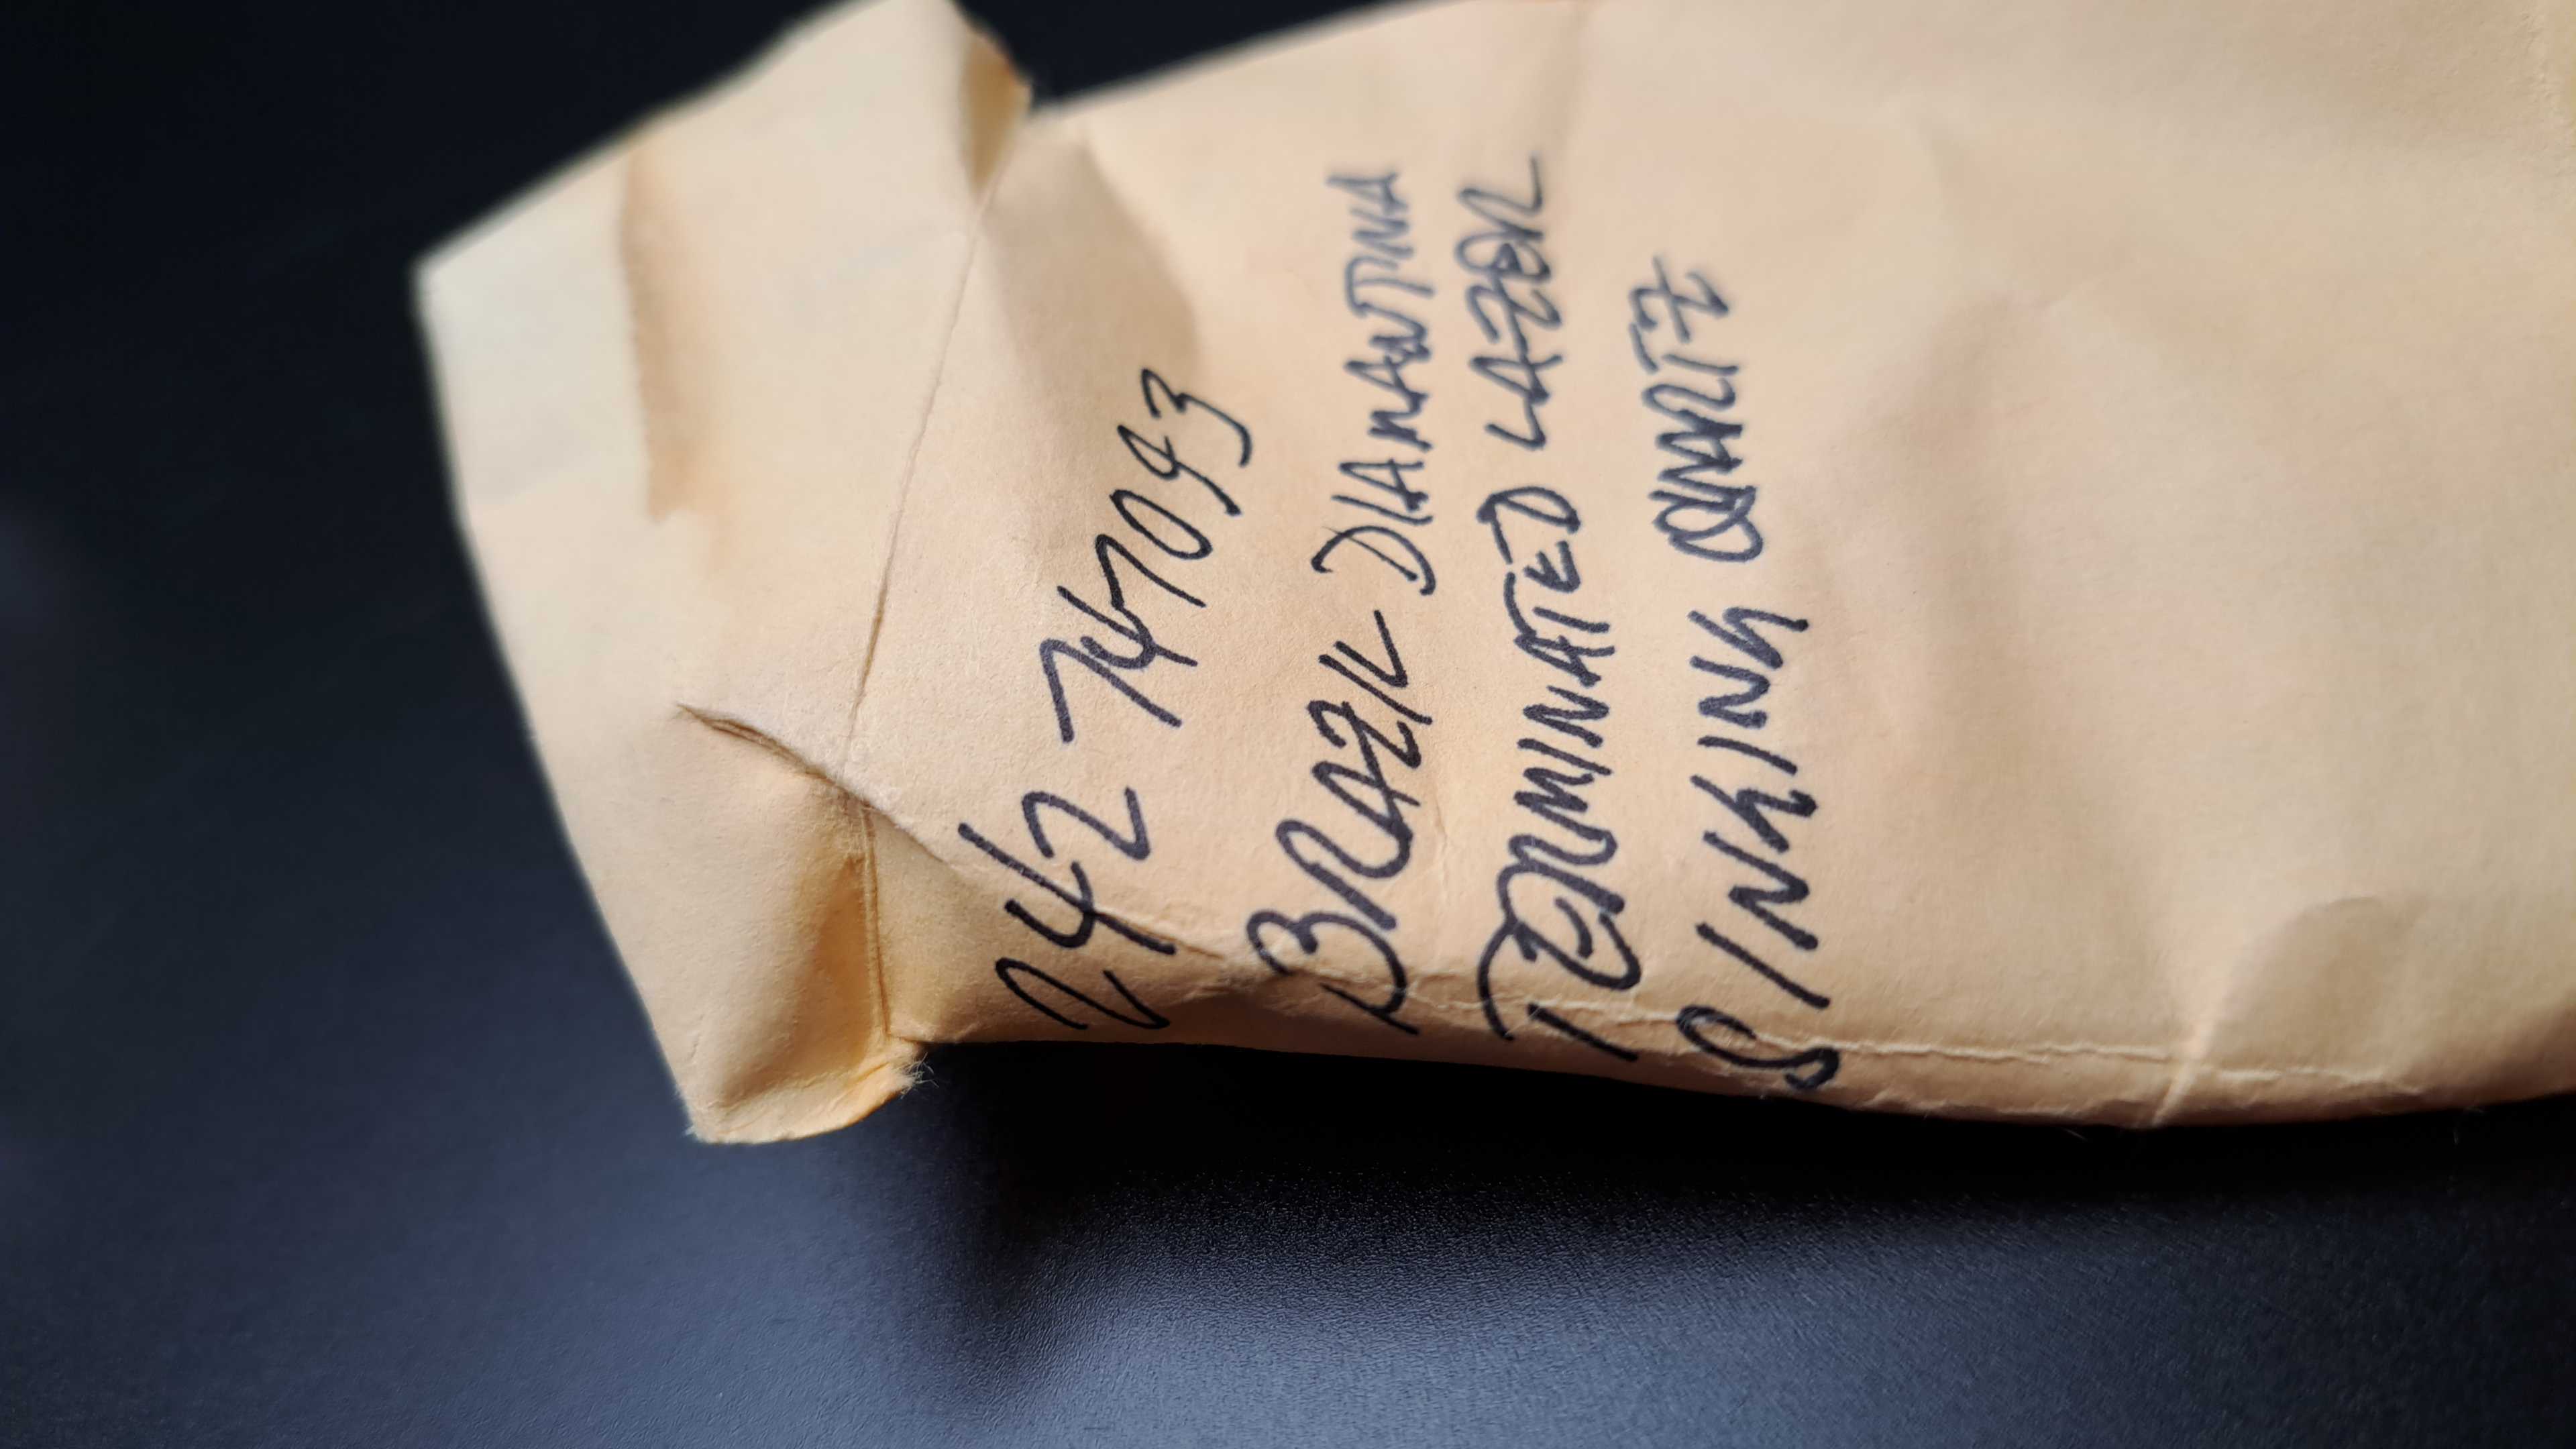 242 747093
BRAZIL DIAMANTINA
TERMINATED LAZER
SINKING QUARTZ